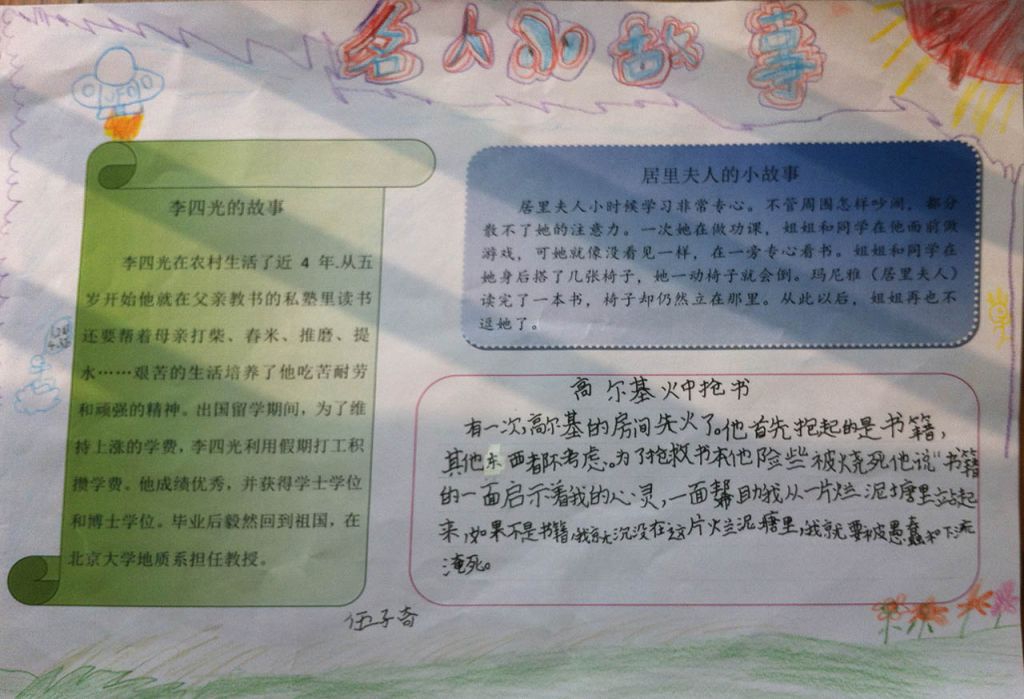 名人小故事
UFO
李四光的故事
李四光在农村生活了近 4 年.从五
岁开始他就在父亲教书的私塾里读书
还要帮着母亲打柴、舂米、推磨、提
水……艰苦的生活培养了他吃苦耐劳
和顽强的精神。出国留学期间，为了维
持上涨的学费，李四光利用假期打工积
攒学费。他成绩优秀，并获得学士学位
和博士学位。毕业后毅然回到祖国，在
北京大学地质系担任教授。
居里夫人的小故事
居里夫人小时候学习非常专心。不管周围怎样吵闹，都分
散不了她的注意力。一次她在做功课，姐姐和同学在他面前做
游戏，可她就像没看见一样，在一旁专心看书。姐姐和同学在
她身后搭了几张椅子，她一动椅子就会倒。玛尼雅（居里夫人）
读完了一本书，椅子却仍然立在那里。从此以后，姐姐再也不
逗她了。
高尔基火中抢书
有一次,高尔基的房间失火了。他首先抱起的是书籍,
其他东西都不考虑。为了抢救书本他险些被烧死他说“书籍
的一面启示着我的心灵,一面帮助我从一片烂泥塘里站起
来,如果不是书籍,我就沉没在这片烂泥塘里,我就要被愚蠢和下流
淹死。
伍子奇